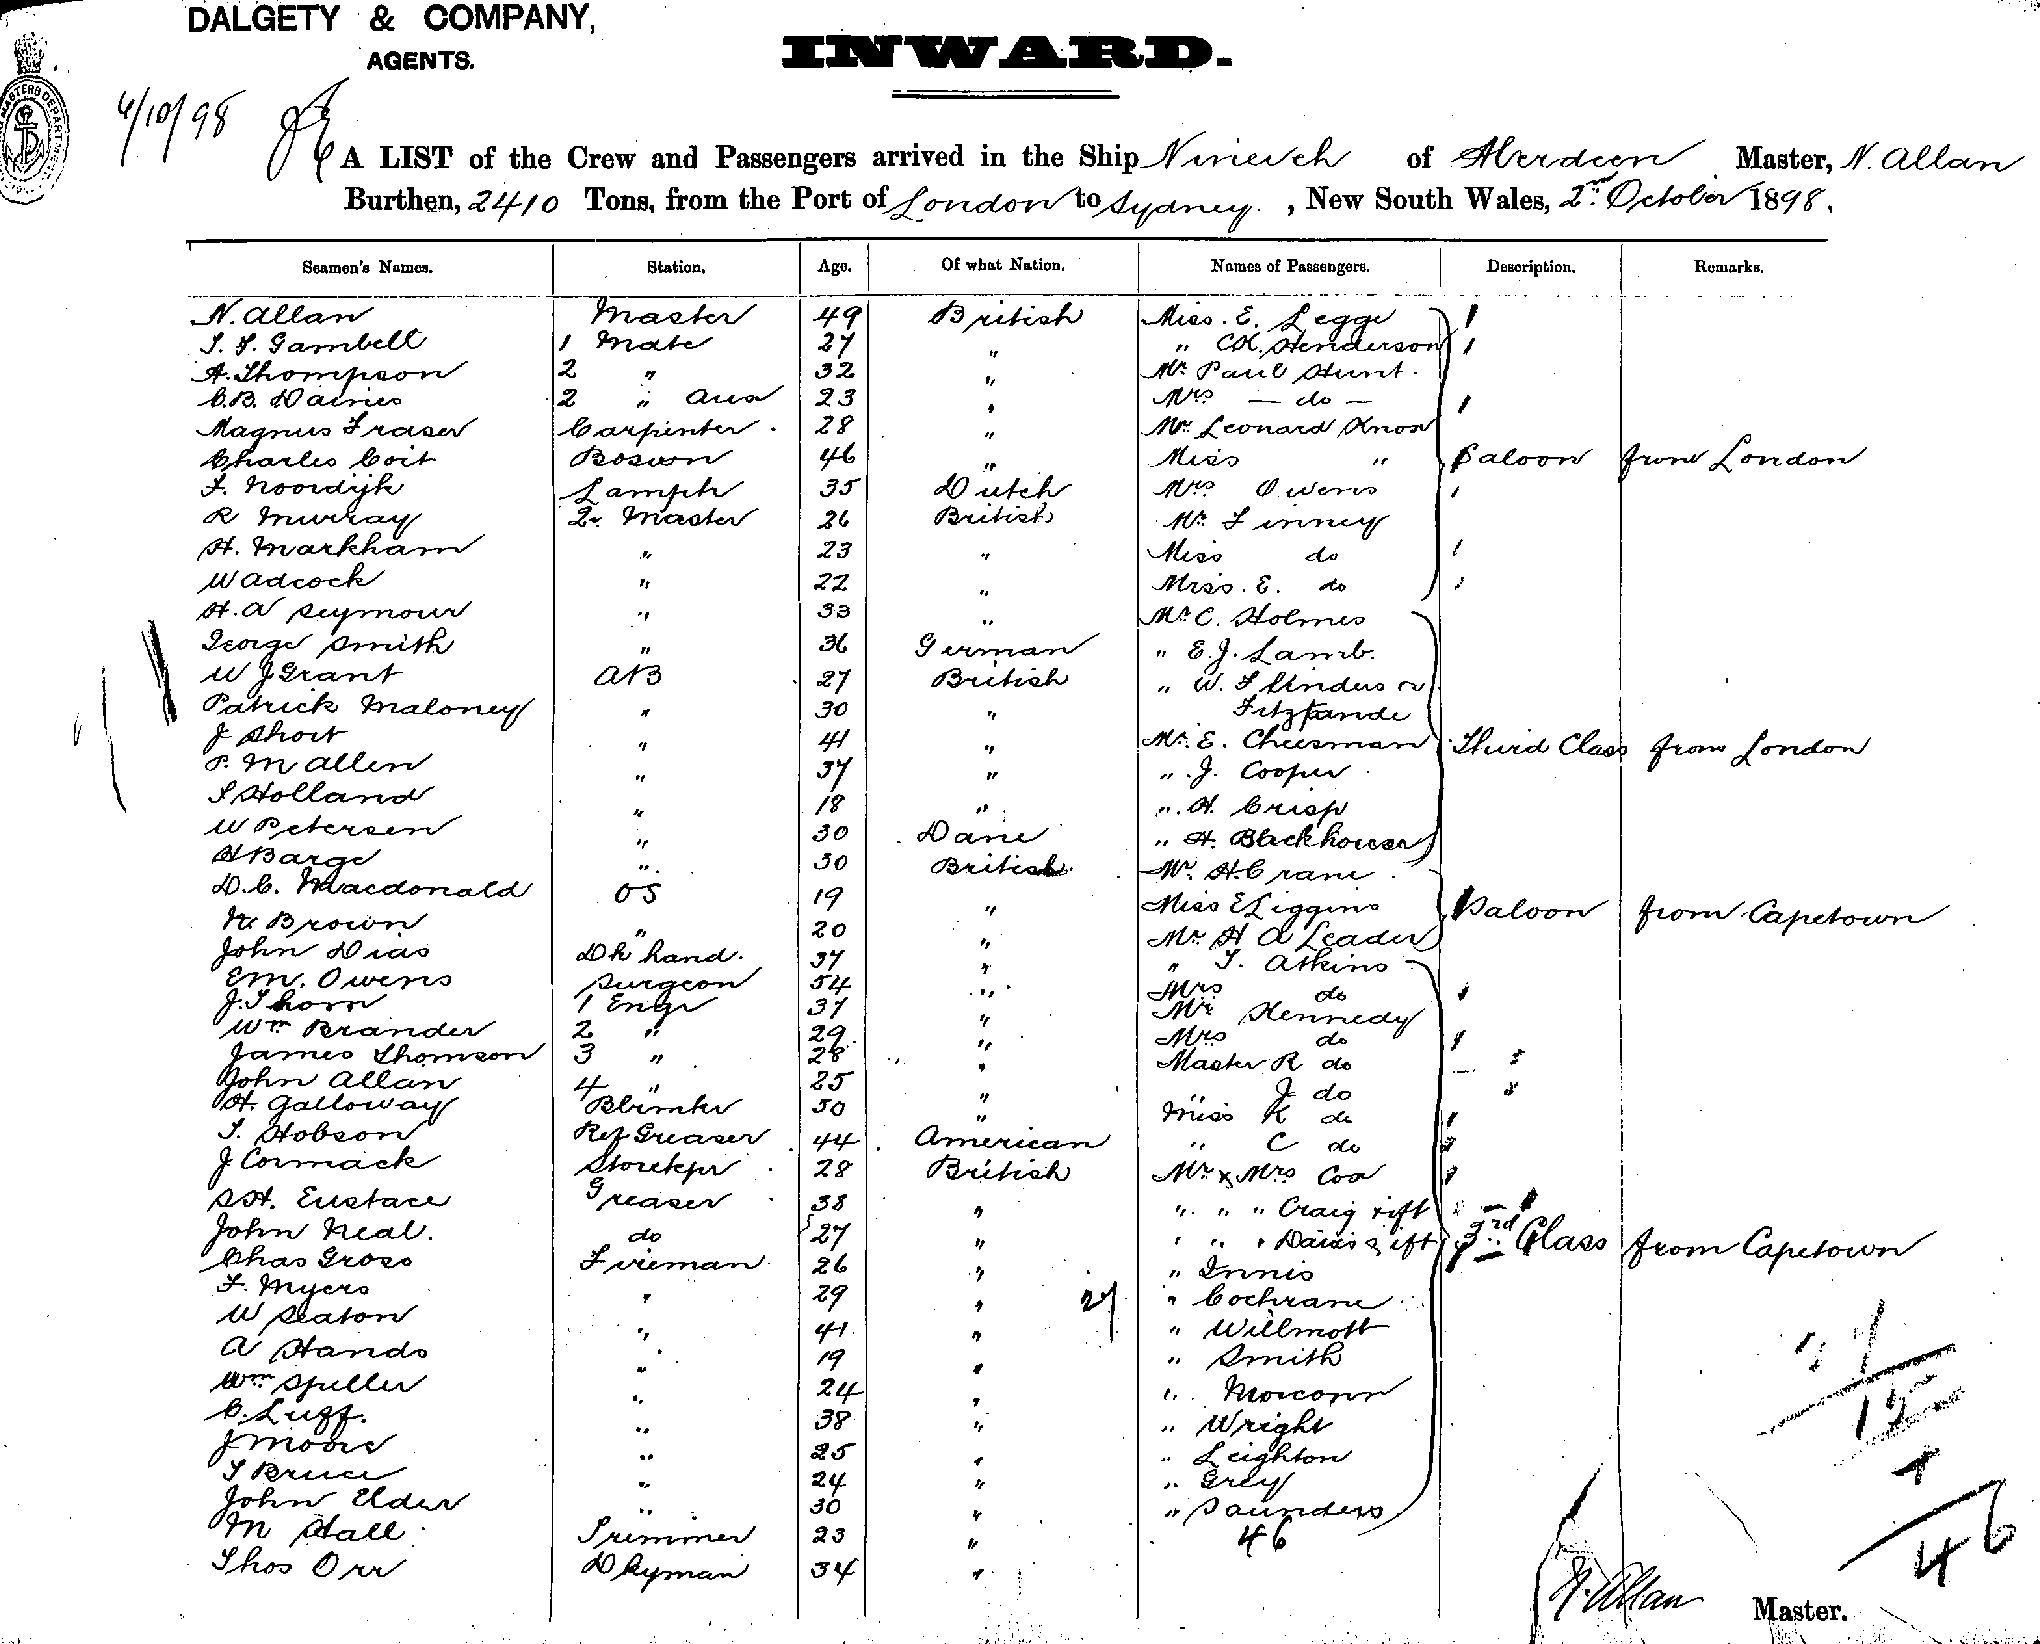 DALGETY & COMPANY,
AGENTS.
INWARD.
6/10/98
A LIST of the Crew and Passengers arrived in the Ship Nineveh of Aberdeen Master, N. Allan
Burthen, 2410 Tons, from the Port of London to Sydney, New South Wales, 2nd October 1898.
Seamen's Names. Station. Age. Of what Nation. Names of Passengers. Description. Remarks.
N. Allan Master 49 British Miss. E. Legge
1 Mate 27 " " Henderson
A. Thompson 2 " 32 " Mr Paul Hunt.
C.B. Dairies 2 " Aux 23 " Mrs — do —
Magnus Fraser Carpenter. 28 " Mr Leonard Knox
Charles Coit Boswn 46 " Miss " Saloon from London
F. Noordijk Lamptr 35 Dutch Mrs Owens
R Murray 2r. Master 26 British Mr Finney
H. Markham " 23 " Miss do
W Adcock " 22 " Miss. E. do
H. A Seymour " 33 " Mr C. Holmes
George Smith " 36 German " E.J. Lamb.
W J Grant AB 27 British " W. Flinders
Patrick Maloney " 30 "
J Short " 41 " Mr. E. Cheesman Third Class from London
P. M Allen " 37 " ". J. Cooper
S Holland " 18 " ". H. Crisp
W Petersen " 30 Dane " H. Blackhouse
H Barge " 30 British Mr. H. Crane
D.C. Macdonald OS 19 " Miss E Liggins Saloon from Capetown
N. Brown " 20 " Mr. H A Leader
John Dias Dk hand. 37 " " T. Atkins
EM. Owens Surgeon 54 " Mrs do
J. Thorn 1 Engr 37 " Mr Kennedy
Wm Brander 2 " 29 " Mrs do
James Thomson 3 " 28 " Master R do
John Allan 4 " 25 " " J do
H. Galloway 50 " Miss K do
T. Hobson Ref Greaser 44 American " C do
J Cormack Storekpr 28 British Mr & Mrs Cox
S H. Eustace Greaser 38 " " " " Craig & ift
John Neal. do 27 " " " " Davis & ift 3rd Class from Capetown
Chas Gross Fireman 26 " " Innis
F. Myers " 29 " 27 " Cochrane
W Seaton " 41 " " Willmott
A Hands " 19 " " Smith
Wm Spiller " 24 "
C. Luff. " 38 " " Wright
J Moore " 25 " " Leighton
T Bruce " 24 " " Grey
John Elder " 30 " " Saunders
M Hall Trimmer 23 " 46
Thos Orr Dkyman 34 "
46
N. Allan Master.